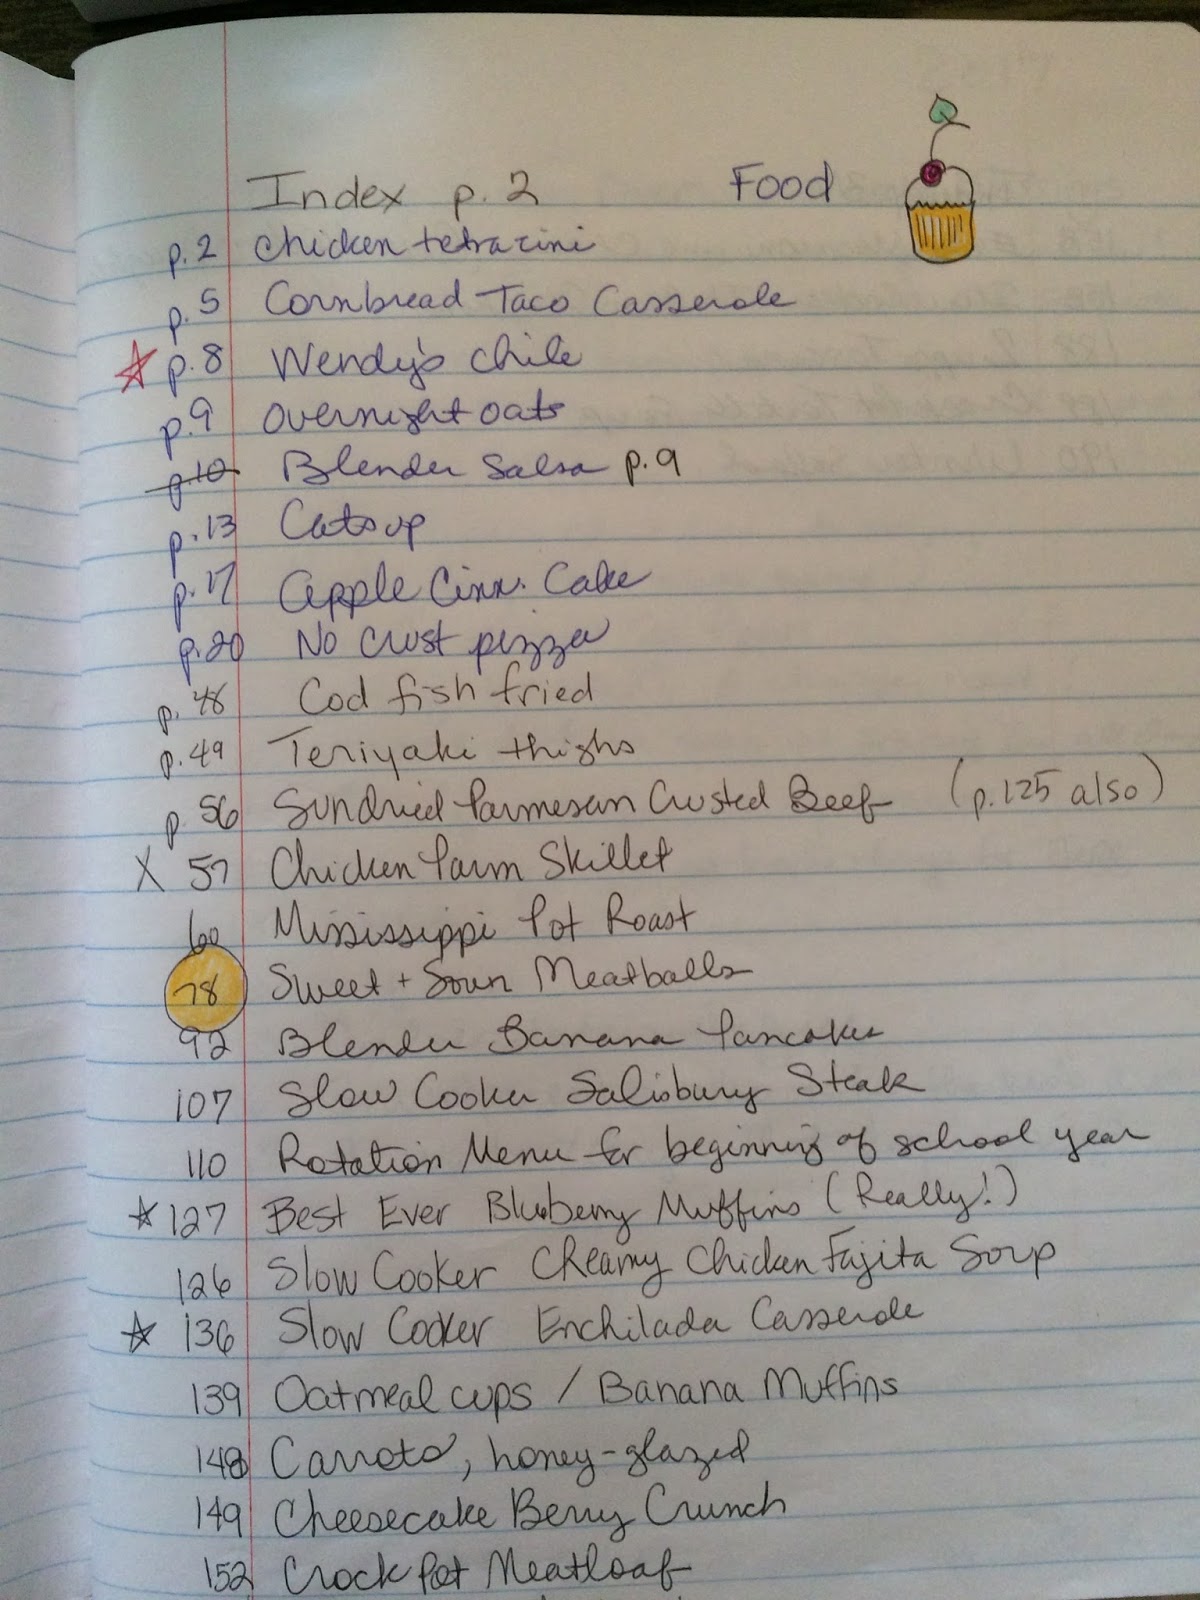 Index p. 2 Food
p. 2 Chicken tetrazini
p. 5 Cornbread Taco Casserole
p. 8 Wendy's Chile
p. 9 Overnight oats
p 10 Blender Salsa p. 9
p. 13 Catsup
p. 17 Apple Cinn. Cake
p. 20 No Crust pizza
p. 48 Cod fish fried
p. 49 Teriyaki thighs
p 56 Sundried Parmesan Crusted Beef (p. 125 also)
X 57 Chicken Parm Skillet
60 Mississippi Pot Roast
78 Sweet + Sour Meatballs
92 Blender Banana Pancakes
107 Slow Cooker Salisbury Steak
110 Rotation Menu for beginning of school year
127 Best Ever Blueberry Muffins (Really!)
126 Slow Cooker Creamy Chicken Fajita Soup
136 Slow Cooker Enchilada Casserole
139 Oatmeal cups / Banana Muffins
148 Carrots, honey-glazed
149 Cheesecake Berry Crunch
152 Crock Pot Meatloaf